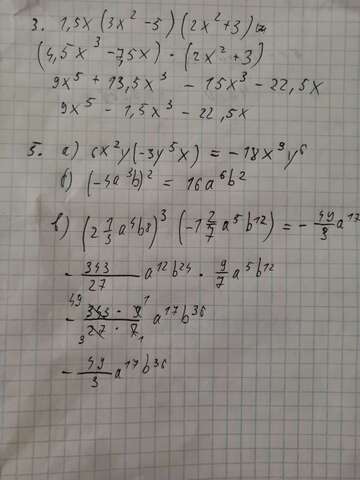 3. 1,5x (3x² - 5) (2x² + 3) =
(4,5x³ - 7,5x) · (2x² + 3)
9x⁵ + 13,5x³ - 15x³ - 22,5x
9x⁵ - 1,5x³ - 22,5x
5. а) 6x²y(-3y⁵x) = -18x³y⁶
б) (-4a³b)² = 16a⁶b²
в) (2 1/3 a⁴b⁸)³ (-1 2/7 a⁵b¹²) = - 49/3 a¹⁷
- 343/27 a¹²b²⁴ · 9/7 a⁵b¹²
- 49 343 · 9 1 / 3 27 · 7 1 a¹⁷b³⁶
- 49/3 a¹⁷b³⁶